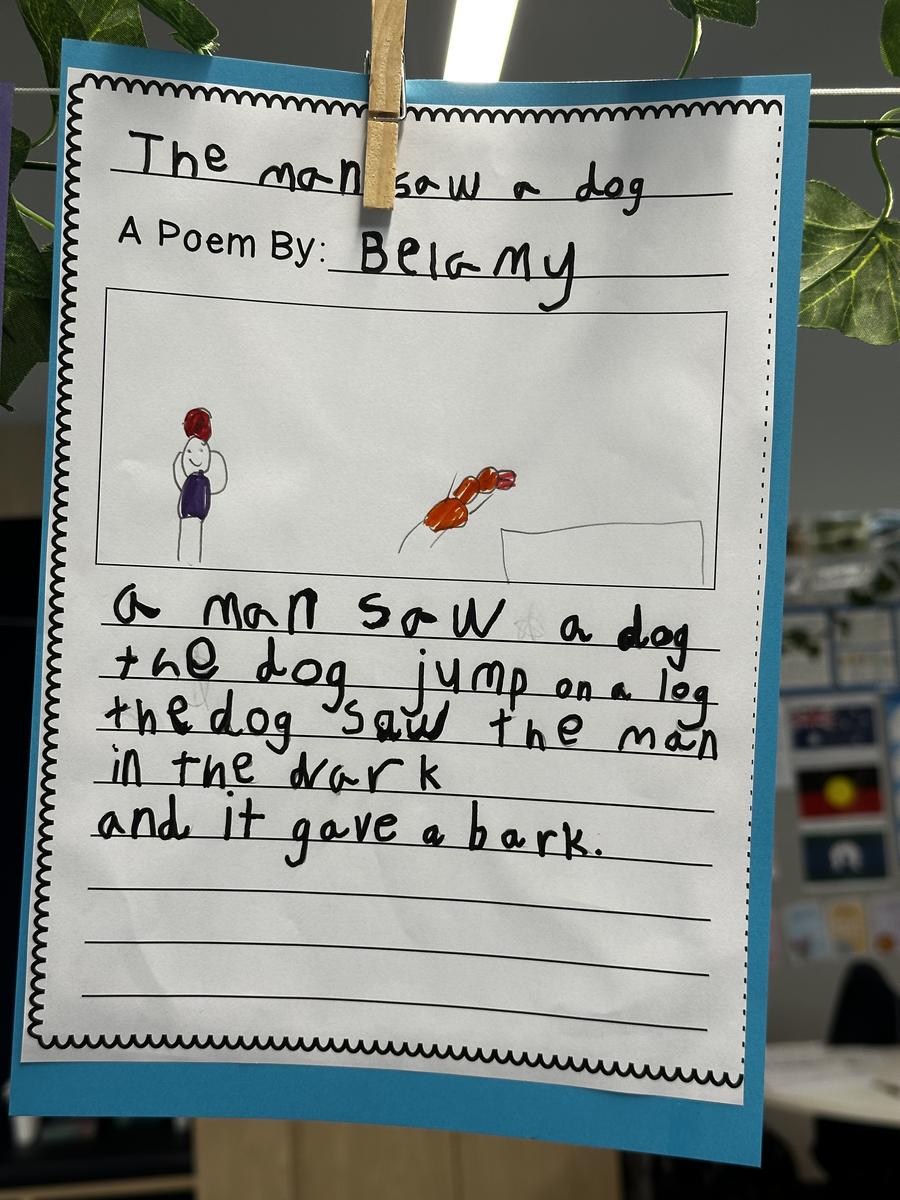 The man saw a dog
A Poem By: Belamy
a man saw a dog
the dog jump on a log
the dog saw the man
in the dark
and it gave a bark.